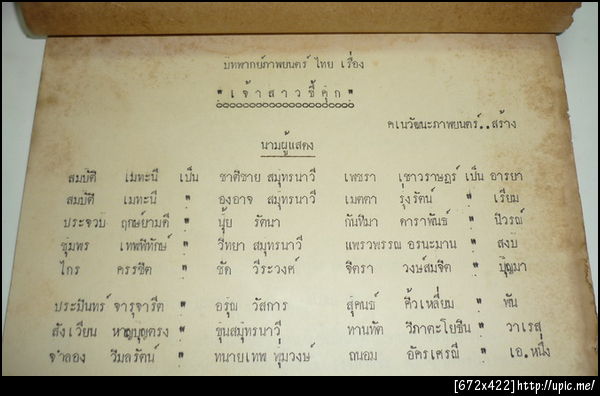 บทพากย์ภาพยนตร์ ไทย เรื่อง
" เจ้าสาวชี้คุก "
คเนวัฒนะภาพยนตร์..สร้าง
นามผู้แสดง
สมบัติ เมทะนี เป็น ชาติชาย สมุทรนาวี เพชรา เชาวราษฎร์ เป็น อารยา
สมบัติ เมทะนี " องอาจ สมุทรนาวี เมตตา รุ่งรัตน์ " เรียม
ประจวบ ฤกษ์ยามดี " นุ้ย รัตนา กันทิมา ดาราพันธ์ " ปิวรณ์
ชุมพร เทพพิทักษ์ " วิทยา สมุทรนาวี แพรวพรรณ อรนะมาน " สงบ
ไกร ครรชิต " ชัด วีระวงศ์ จิตรา วงษ์สมจิต " บุญมา
ประมินทร์ จารุจารีต " อรุณ วัสการ สุคนธ์ คิ้วเหลี่ยม " พัน
สังเวียน หาญบุญตรง " ขุนสมุทรนาวี ทานทัต วิภาตะโยธิน " วาเรสุ
จำลอง วิมลรัตน์ " ทนายเทพ พุ่มวงษ์ ถนอม อัครเศรณี " เอ.หนึ่ง
[672x422]http://upic.me/